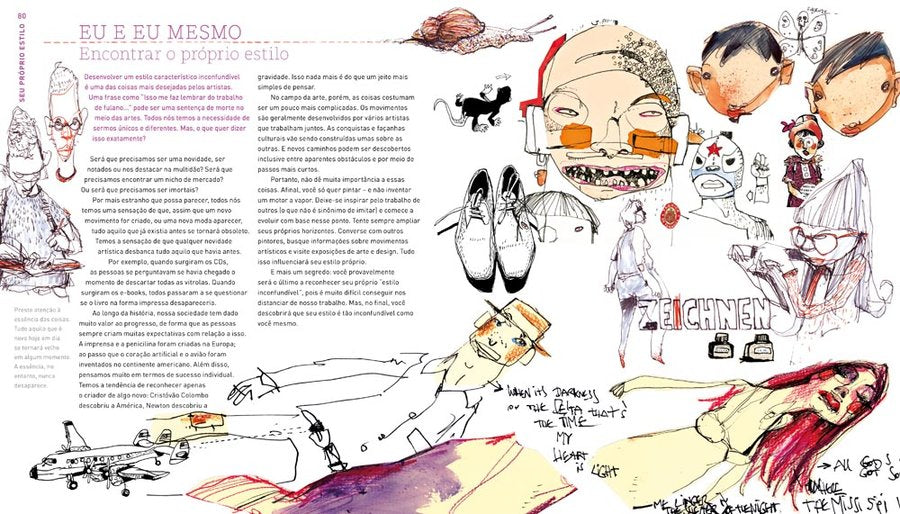 80
SEU PRÓPRIO ESTILO
EU E EU MESMO
Encontrar o próprio estilo
Desenvolver um estilo característico inconfundível
é uma das coisas mais desejadas pelos artistas.
Uma frase como "Isso me faz lembrar do trabalho
de fulano..." pode ser uma sentença de morte no
meio das artes. Todos nós temos a necessidade de
sermos únicos e diferentes. Mas, o que quer dizer
isso exatamente?
Será que precisamos ser uma novidade, ser
notados ou nos destacar na multidão? Será que
precisamos encontrar um nicho de mercado?
Ou será que precisamos ser imortais?
Por mais estranho que possa parecer, todos nós
temos uma sensação de que, assim que um novo
movimento for criado, ou uma nova moda aparecer,
tudo aquilo que já existia antes se tornará obsoleto.
Temos a sensação de que qualquer novidade
artística desbanca tudo aquilo que havia antes.
Por exemplo, quando surgiram os CDs,
as pessoas se perguntavam se havia chegado o
momento de descartar todas as vitrolas. Quando
surgiram os e-books, todos passaram a se questionar
se o livro na forma impressa desapareceria.
Ao longo da história, nossa sociedade tem dado
muito valor ao progresso, de forma que as pessoas
sempre criam muitas expectativas com relação a isso.
A imprensa e a penicilina foram criadas na Europa;
ao passo que o coração artificial e o avião foram
inventados no continente americano. Além disso,
pensamos muito em termos de sucesso individual.
Temos a tendência de reconhecer apenas
o criador de algo novo: Cristóvão Colombo
descobriu a América, Newton descobriu a
gravidade. Isso nada mais é do que um jeito mais
simples de pensar.
No campo da arte, porém, as coisas costumam
ser um pouco mais complicadas. Os movimentos
são geralmente desenvolvidos por vários artistas
que trabalham juntos. As conquistas e façanhas
culturais vão sendo construídas umas sobre as
outras. E novos caminhos podem ser descobertos
inclusive entre aparentes obstáculos e por meio de
passos mais curtos.
Portanto, não dê muita importância a essas
coisas. Afinal, você só quer pintar – e não inventar
um motor a vapor. Deixe-se inspirar pelo trabalho de
outros (o que não é sinônimo de imitar) e comece a
evoluir com base nesse ponto. Tente sempre ampliar
seus próprios horizontes. Converse com outros
pintores, busque informações sobre movimentos
artísticos e visite exposições de arte e design. Tudo
isso influenciará seu estilo próprio.
E mais um segredo: você provavelmente
será o último a reconhecer seu próprio "estilo
inconfundível", pois é muito difícil conseguir nos
distanciar de nosso trabalho. Mas, no final, você
descobrirá que seu estilo é tão inconfundível como
você mesmo.
Preste atenção à
essência das coisas.
Tudo aquilo que é
novo hoje em dia
se tornará velho
em algum momento.
A essência, no
entanto, nunca
desaparece.
ZEICHNEN
WHEN IT'S DARKNESS
ON THE DELTA THAT'S
THE TIME
MY
HEART
IS LIGHT
ALL GOD'S
GOT SO
THE MISSI